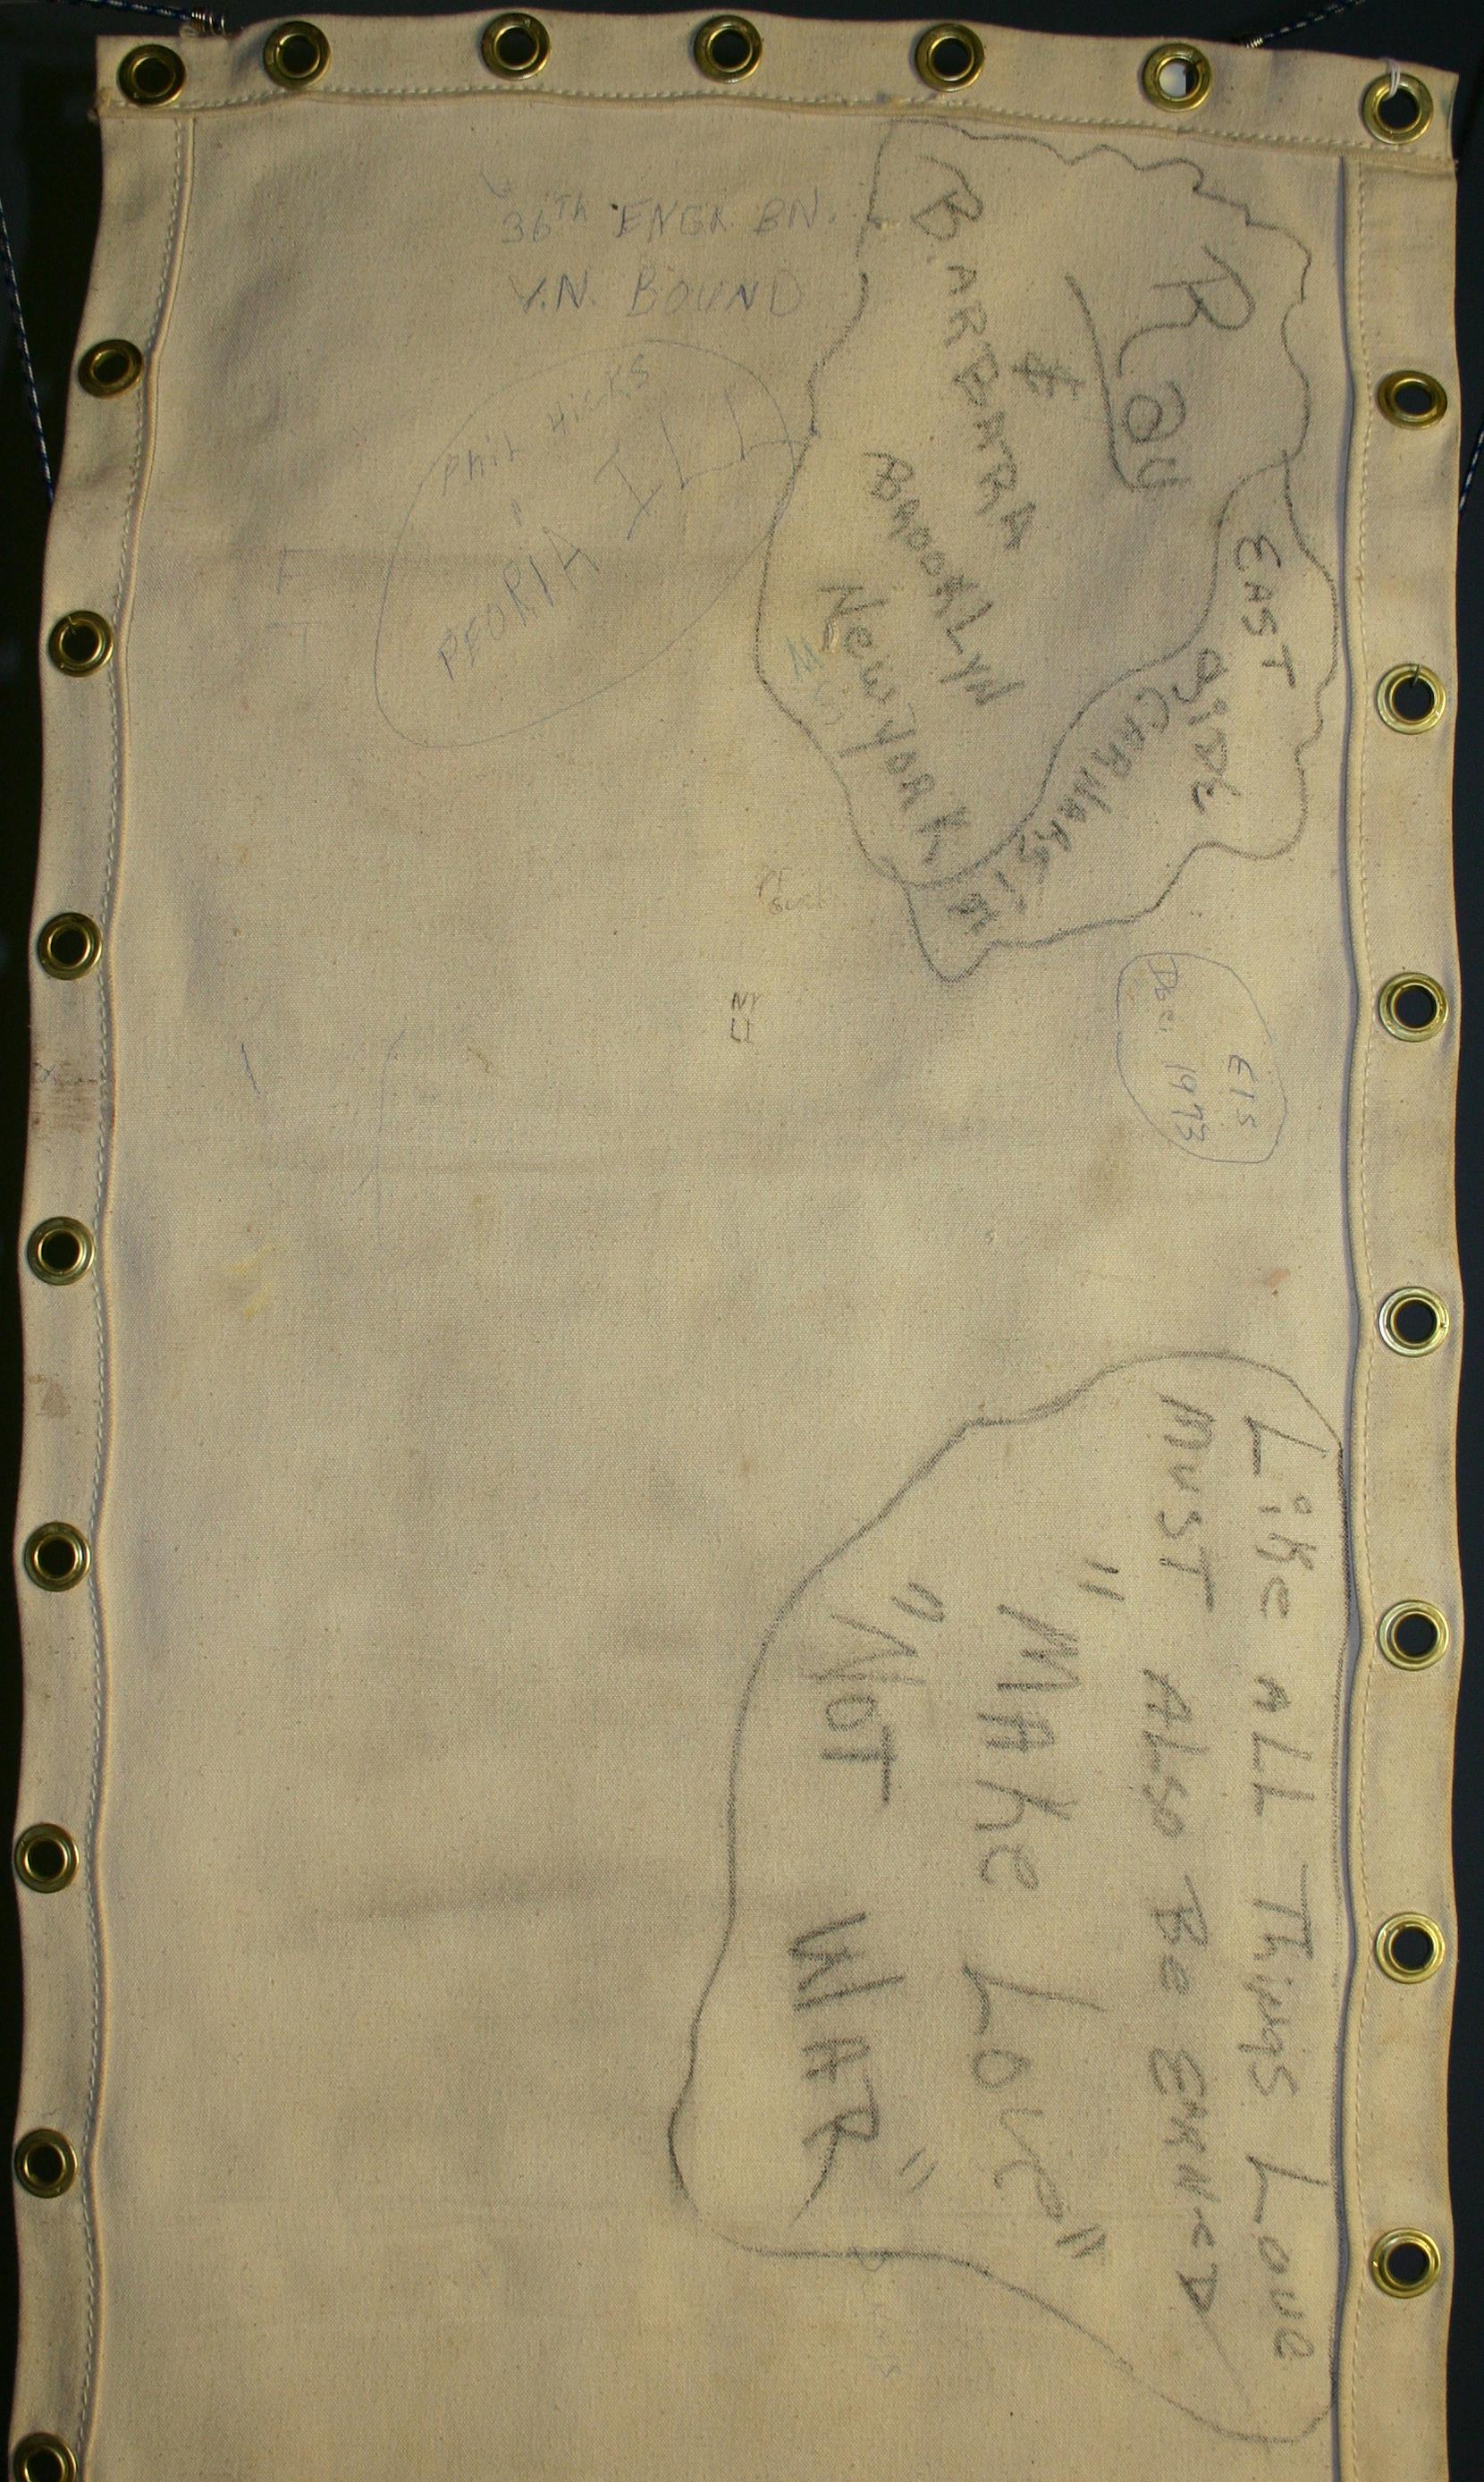 36TH ENGR. BN.
V.N. BOUND
Phil Hicks
PEORIA ILL
Ray
&
BARBARA
BROOKLYN
New YORK
EAST
SiDE
CARNARSIE
NY
LI
ETS
Dec. 1973
Like ALL Things Love
MUST ALSO Be EARNeD
"MAke Love"
"NOT WAR"